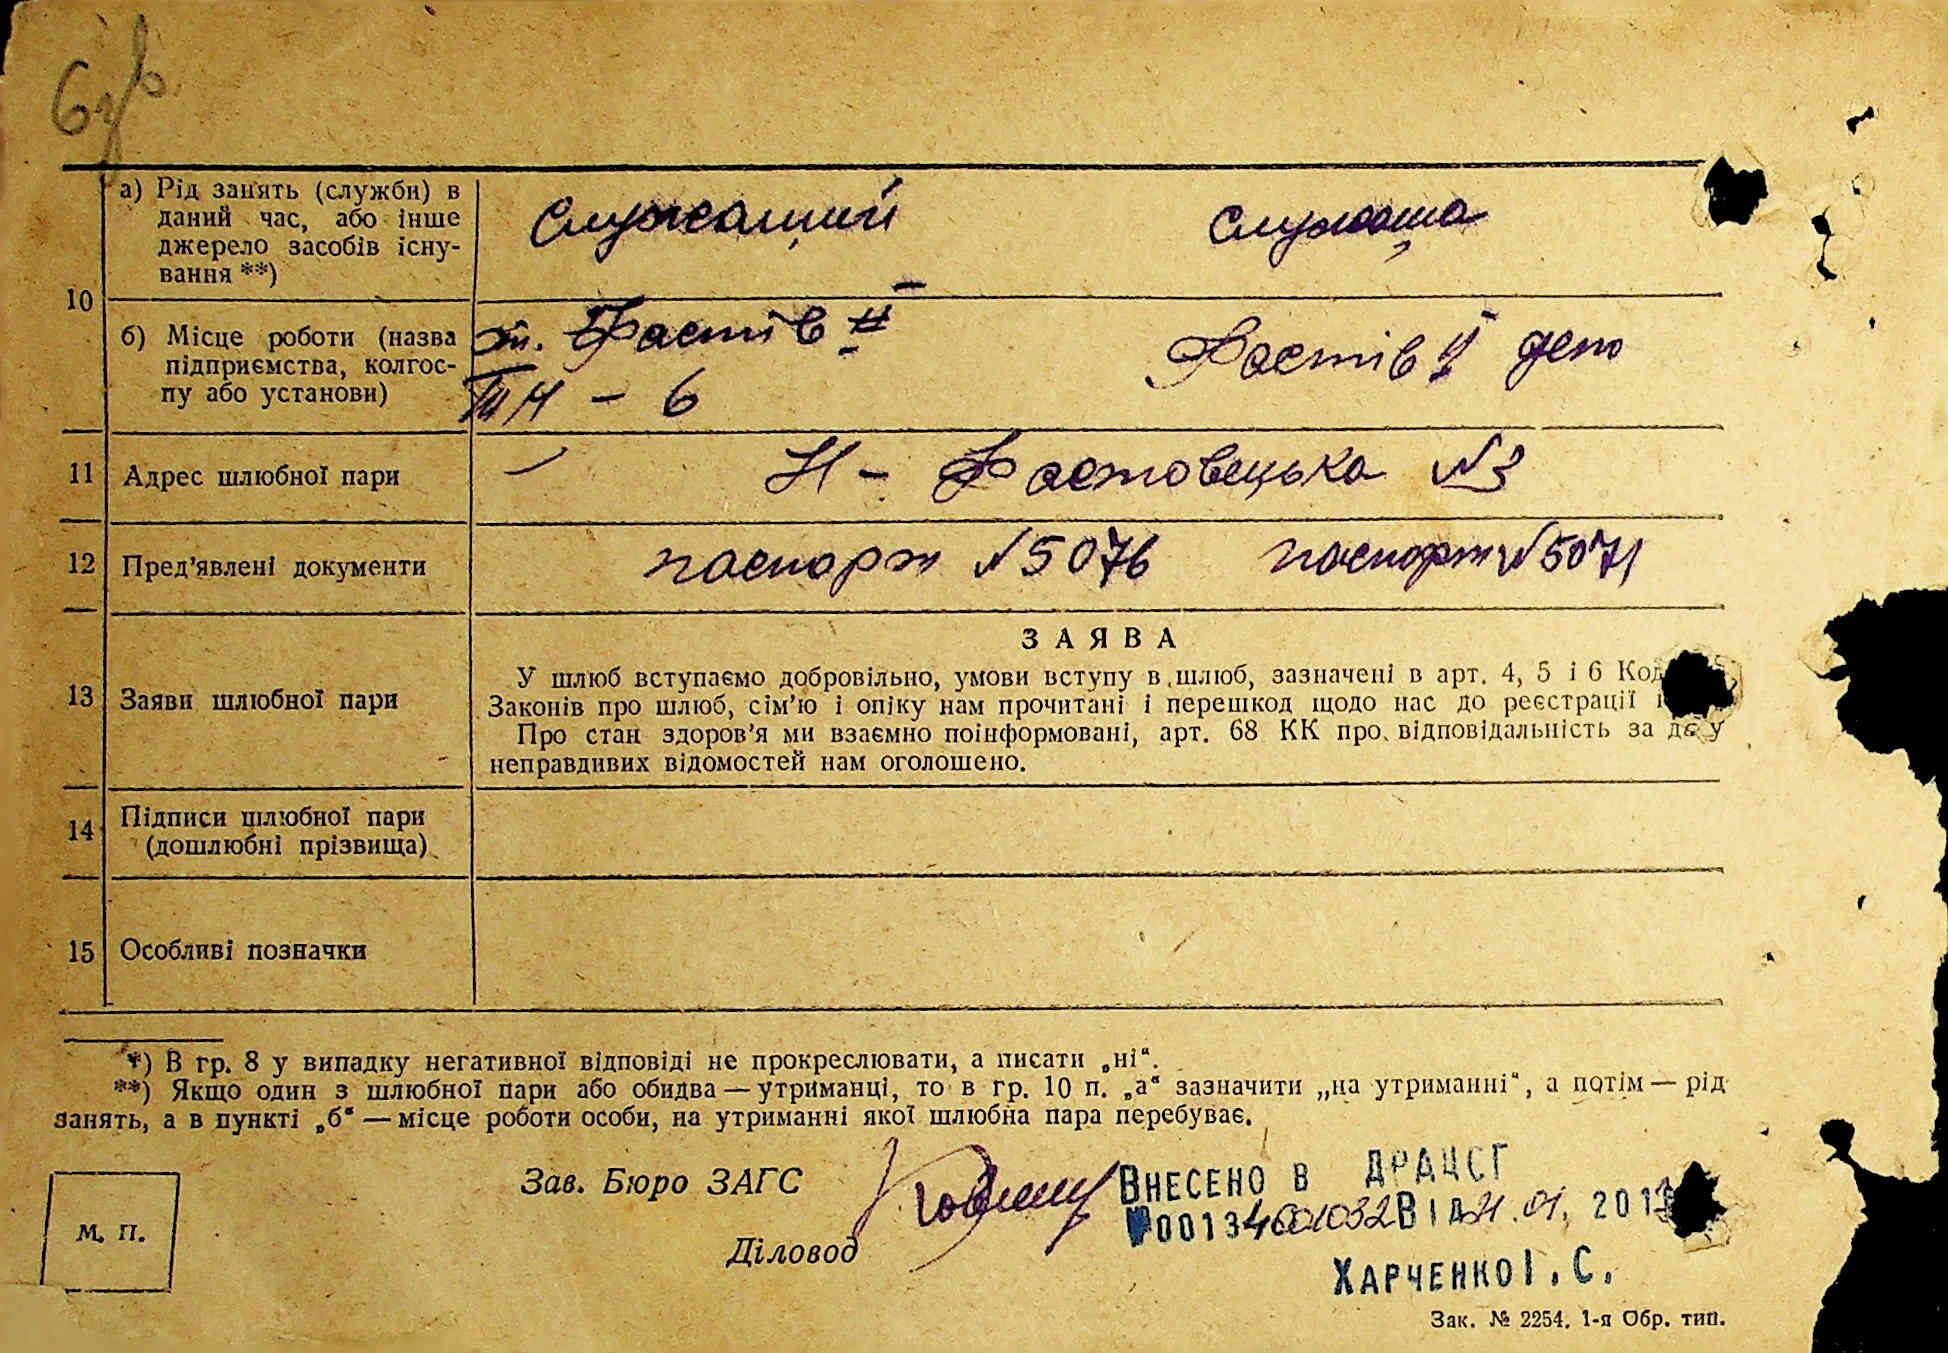 а) Рід занять (служби) в
даний час, або інше
джерело засобів існу-
вання **)
Служащий
Служаща
10
б) Місце роботи (назва
підприємства, колгос-
пу або установи)
ст. Фастів II
- 6
Фастів II депо
11
Адрес шлюбної пари
Н - Фастовецька №3
12
Пред'явлені документи
паспорт №5076
паспорт №5071
13
Заяви шлюбної пари
ЗАЯВА
У шлюб вступаємо добровільно, умови вступу в шлюб, зазначені в арт. 4, 5 і 6 Код
Законів про шлюб, сім'ю і опіку нам прочитані і перешкод щодо нас до реєстрації
Про стан здоров'я ми взаємно поінформовані, арт. 68 КК про відповідальність за дачу
неправдивих відомостей нам оголошено.
14
Підписи шлюбної пари
(дошлюбні прізвища)
15
Особливі позначки
*) В гр. 8 у випадку негативної відповіді не прокреслювати, а писати „ні“.
**) Якщо один з шлюбної пари або обидва — утриманці, то в гр. 10 п. „а“ зазначити „на утриманні“, а потім — рід
занять, а в пункті „б“ — місце роботи особи, на утриманні якої шлюбна пара перебуває.
М. П.
Зав. Бюро ЗАГС
Діловод
Внесено в ДРАЦСГ
№00134001032 Від 21.01.201
Харченко І. С.
Зак. № 2254. 1-я Обр. тип.